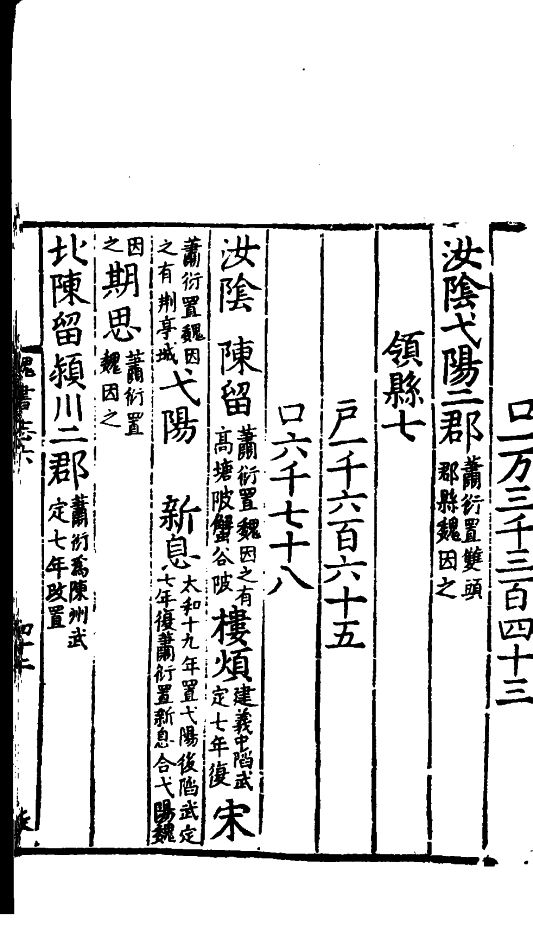 口一万三千三百四十三
汝陰弋陽二郡蕭衍置雙頭郡縣魏因之
領縣七
戸一千六百六十五
口六千七十八
汝陰 陳留蕭衍置魏因之有高塘陂蟹谷陂樓煩建義中䧟武定七年復宋
蕭衍置魏因之有荆亭城弋陽 新息太和十九年置弋陽後䧟武定七年復蕭衍置新息合弋陽魏
因之期思蕭衍置魏因之
北陳留潁川二郡蕭衍爲陳州武定七年改置
魏書志六